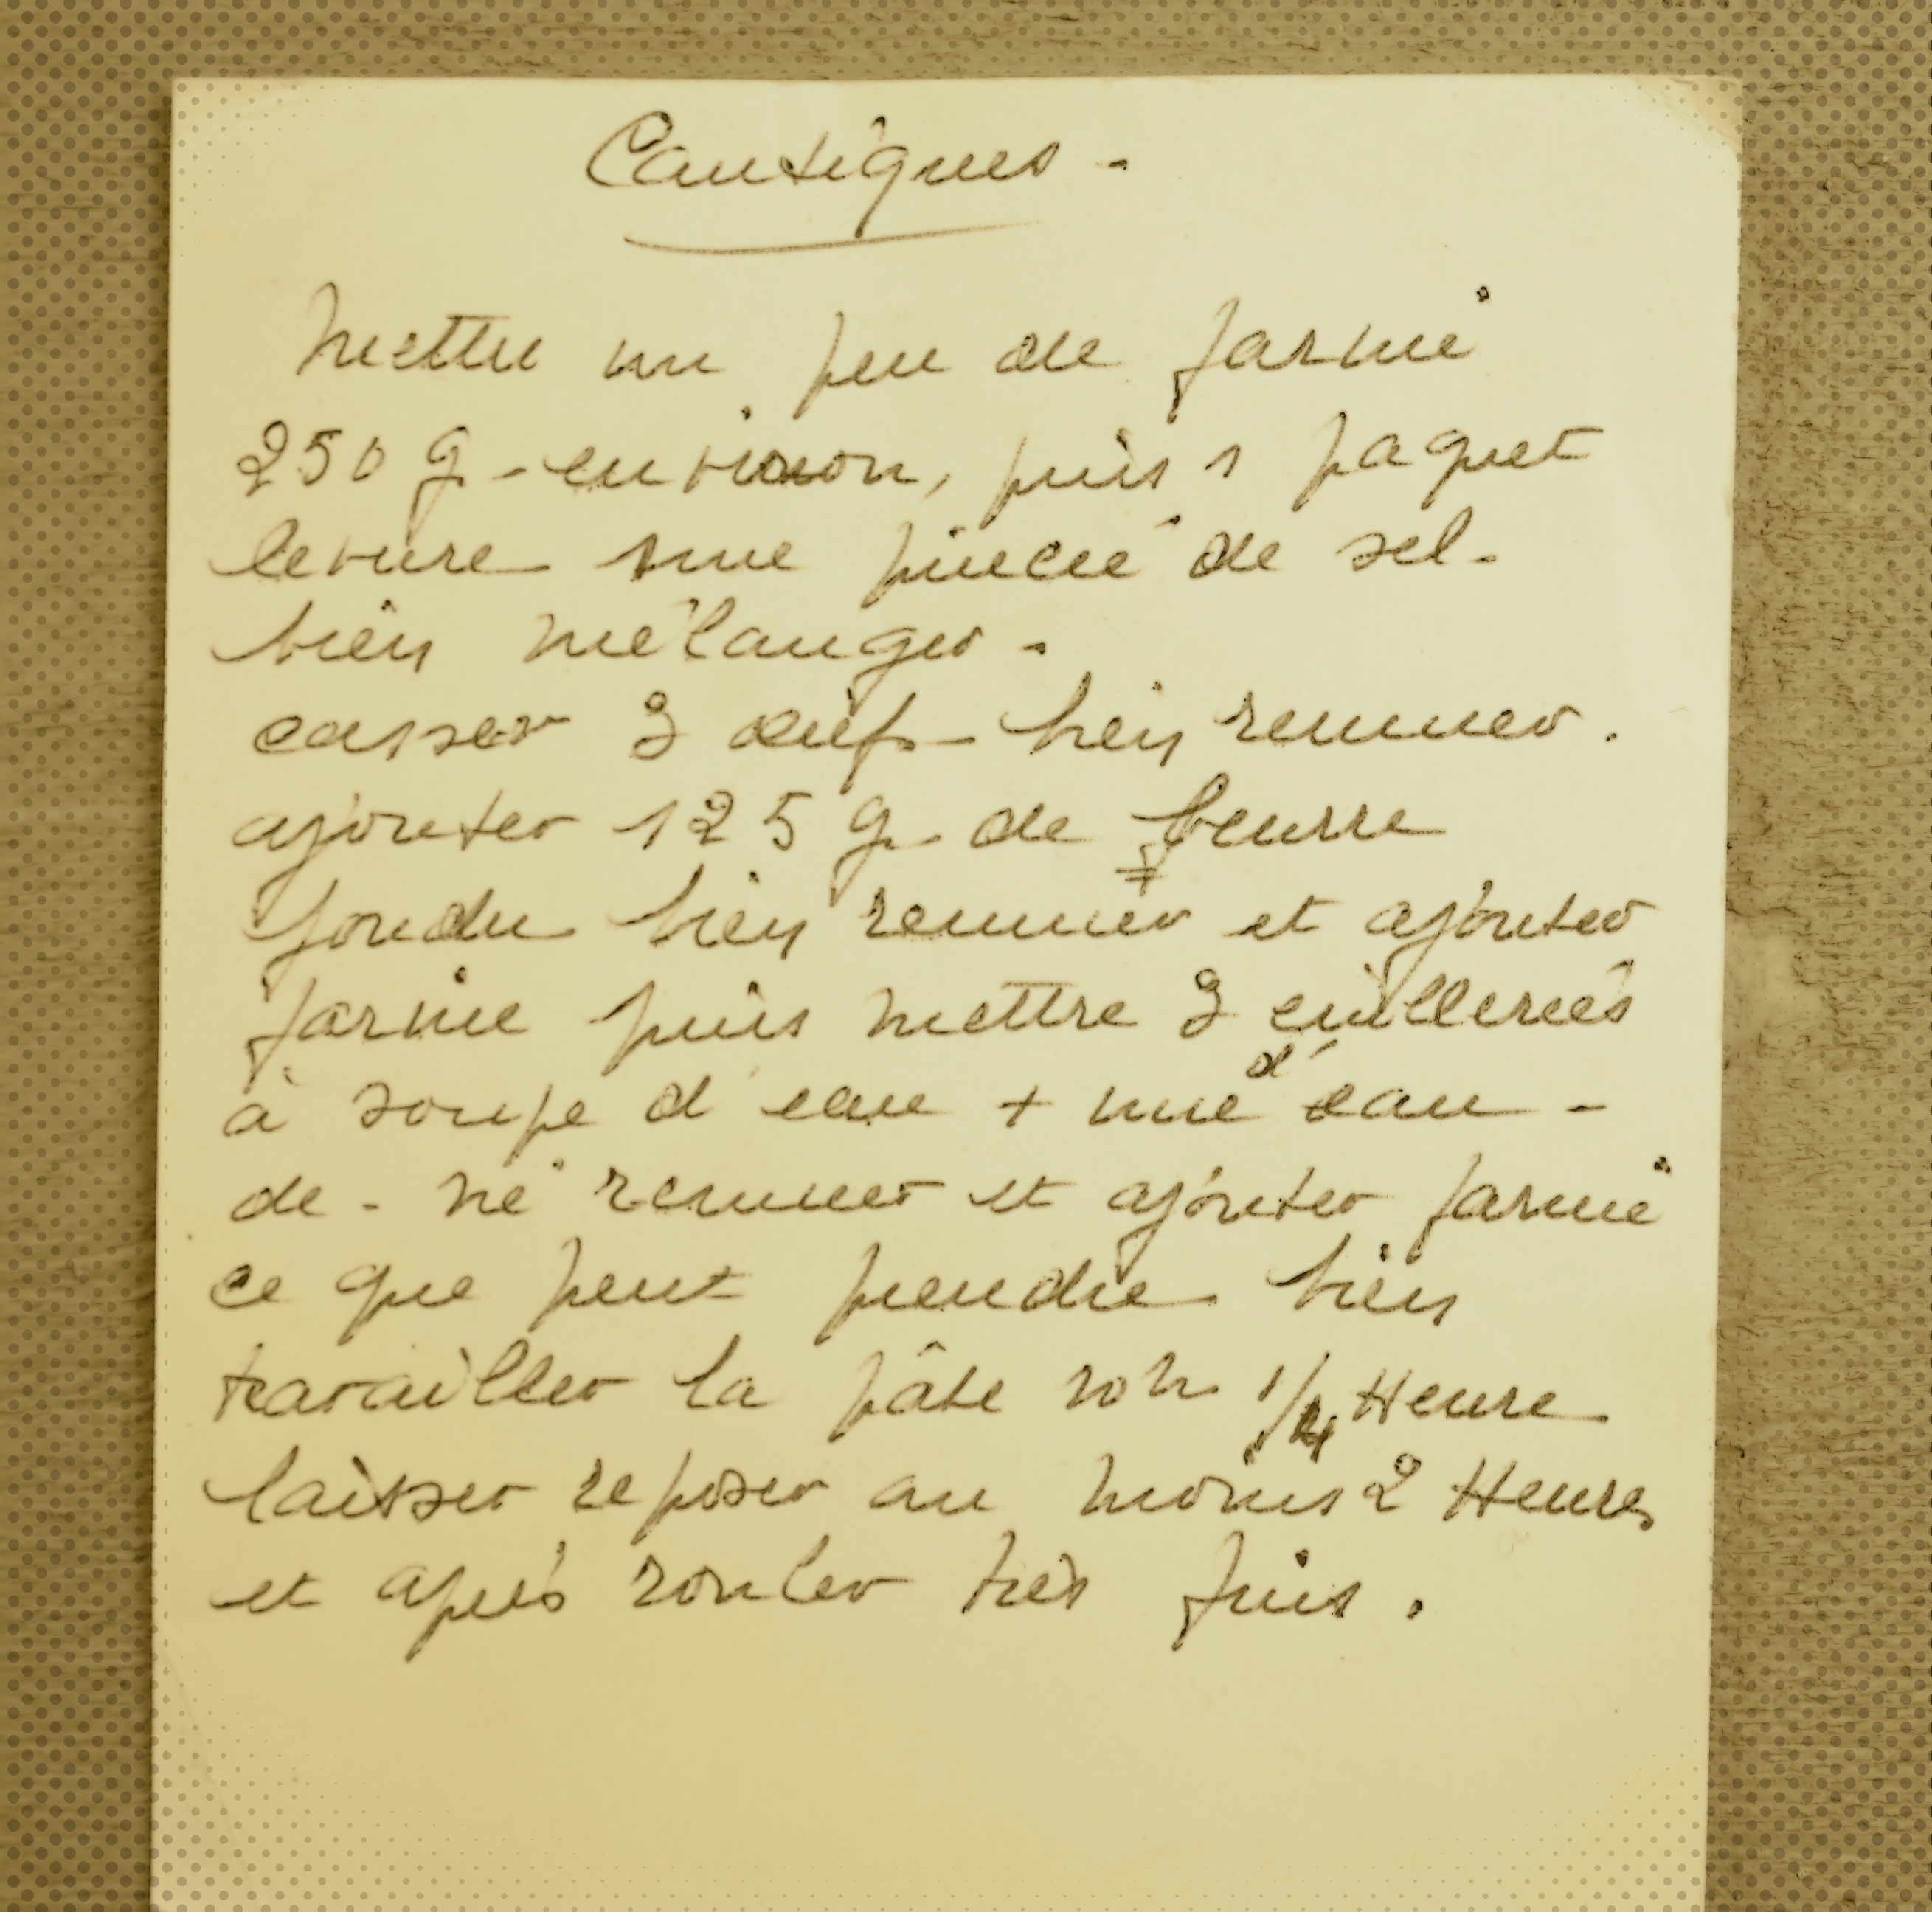 Cantiques -
Mettre un peu de farine
250 g - environ, puis 1 paquet
levure 1 une pincée de sel -
bien mélanger -
casser 3 œufs - bien remuer .
ajouter 125 g de beurre
fondu bien remuer et ajouter
farine puis mettre 3 cuillerées
à soupe d'eau + une d'eau -
de - vie remuer et ajouter farine
ce que peut prendre bien
travailler la pâte 1/4 Heure
laisser reposer au moins 2 Heures
et après rouler très fins .